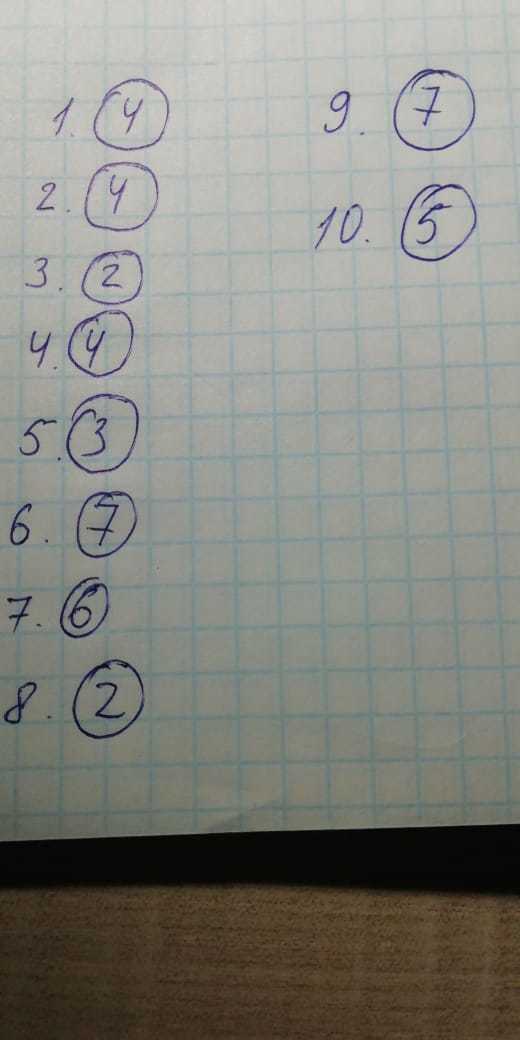 1. 4
2. 4
3. 2
4. 4
5. 3
6. 7
7. 6
8. 2
9. 7
10. 5